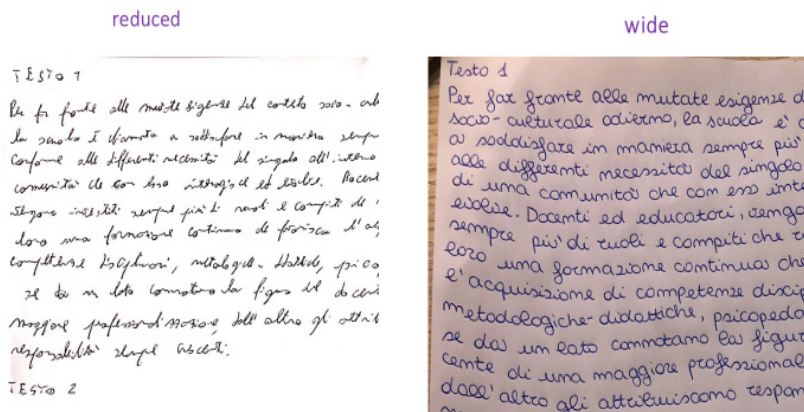 reduced
wide
TESTO 1
Per far fronte alle mutate esigenze del contesto socio-
la scuola è chiamata a soddisfare in maniera sempre
conforme alle differenti necessità del singolo all'interno
comunità che con essa interagisce ed evolve. Docenti
vengono investiti sempre più di ruoli e compiti
loro una formazione continua che favorisca l'
competenze disciplinari, metodologiche-didattiche, psico
se da un lato connotano la figura del docen
maggiore professionalizzazione, dall'altro gli attrib
responsabilità sempre crescenti.
TESTO 2
Testo 1
Per far fronte alle mutate esigenze d
socio-culturale odierno, la scuola e' c
a soddisfare in maniera sempre piu'
alle differenti necessita' del singolo
di una comunita' che con essa inte
evolve. Docenti ed educatori, vengo
sempre piu' di ruoli e compiti che r
loro una formazione continua che
l'acquisizione di competenze discip
metodologiche-didattiche, psicopedo
se da un lato connotano la figur
cente di una maggiore professional
dall'altro gli attribuiscono respon